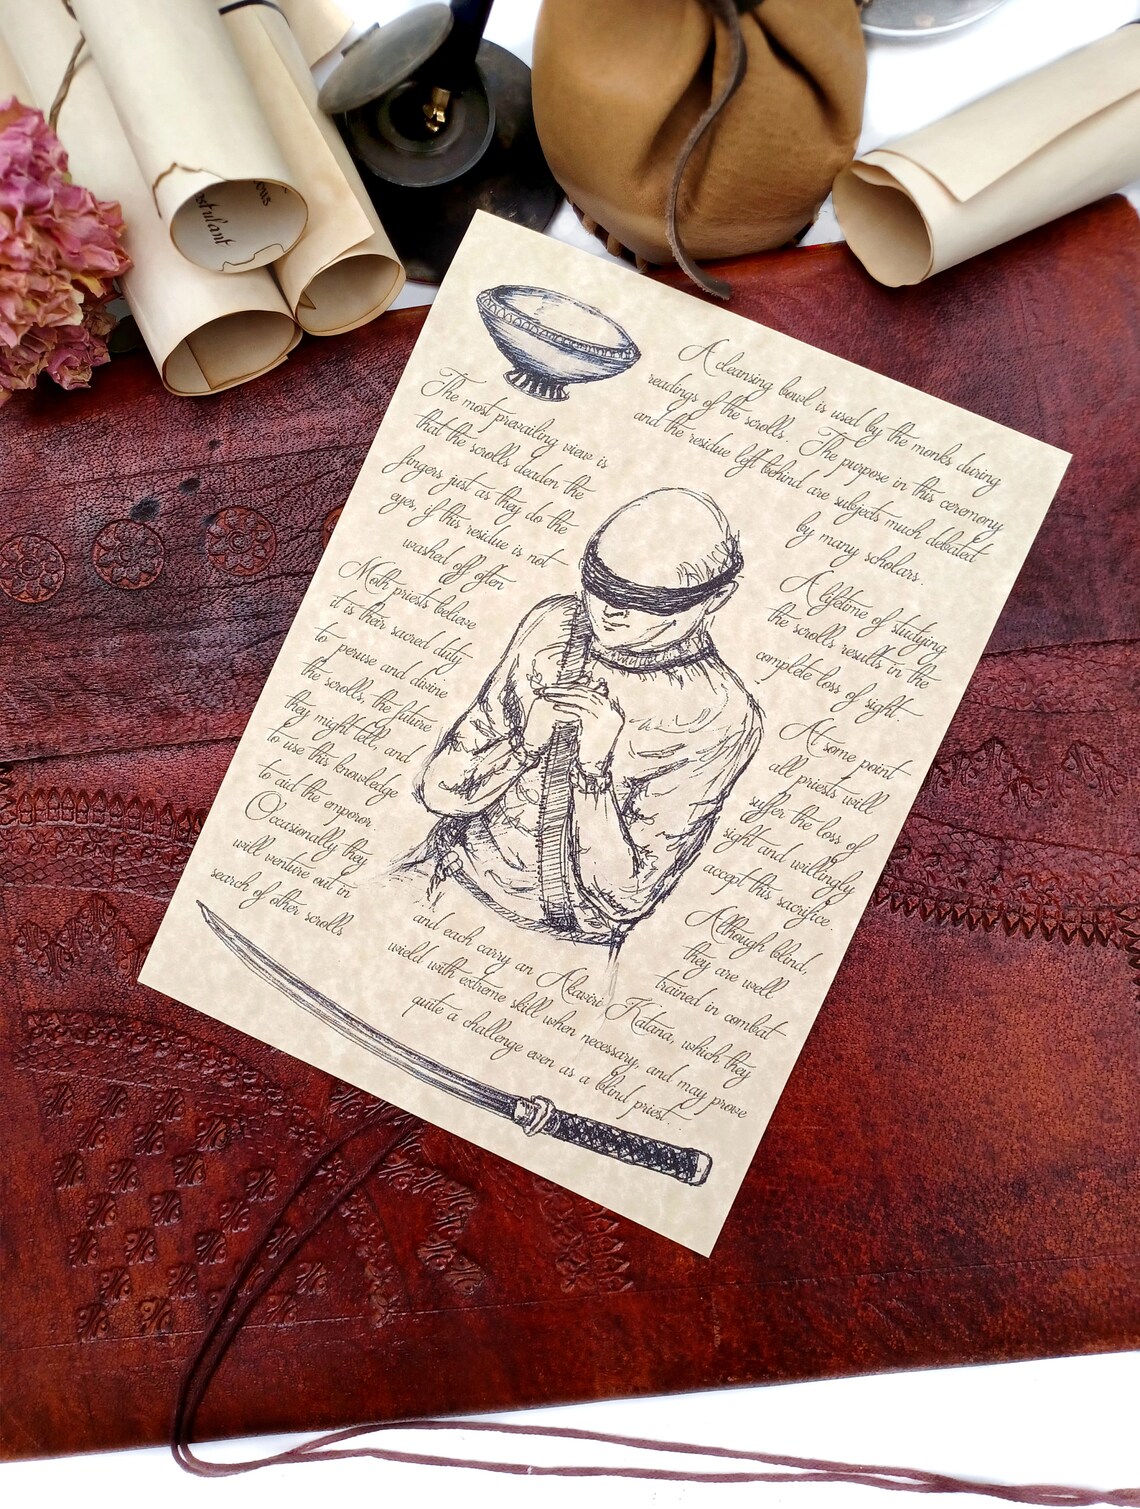 ous
stulant
A cleansing bowl is used by the monks during
readings of the scrolls. The purpose in this ceremony
and the residue left behind are subjects much debated
by many scholars.
The most prevailing view is
that the scrolls deaden the
fingers just as they do the
eyes, if this residue is not
washed off often
Moth priests believe
it is their sacred duty
to peruse and divine
the scrolls, the future
they might tell, and
to use this knowledge
to aid the emporor.
Occasionally they
will venture out in
search of other scrolls
A lifetime of studying
the scrolls results in the
complete loss of sight.
At some point
all priests will
suffer the loss of
sight and willingly
accept this sacrifice.
Although blind,
they are well
trained in combat
and each carry an Akaviri Katana, which they
wield with extreme skill when necessary, and may prove
quite a challenge even as a blind priest.